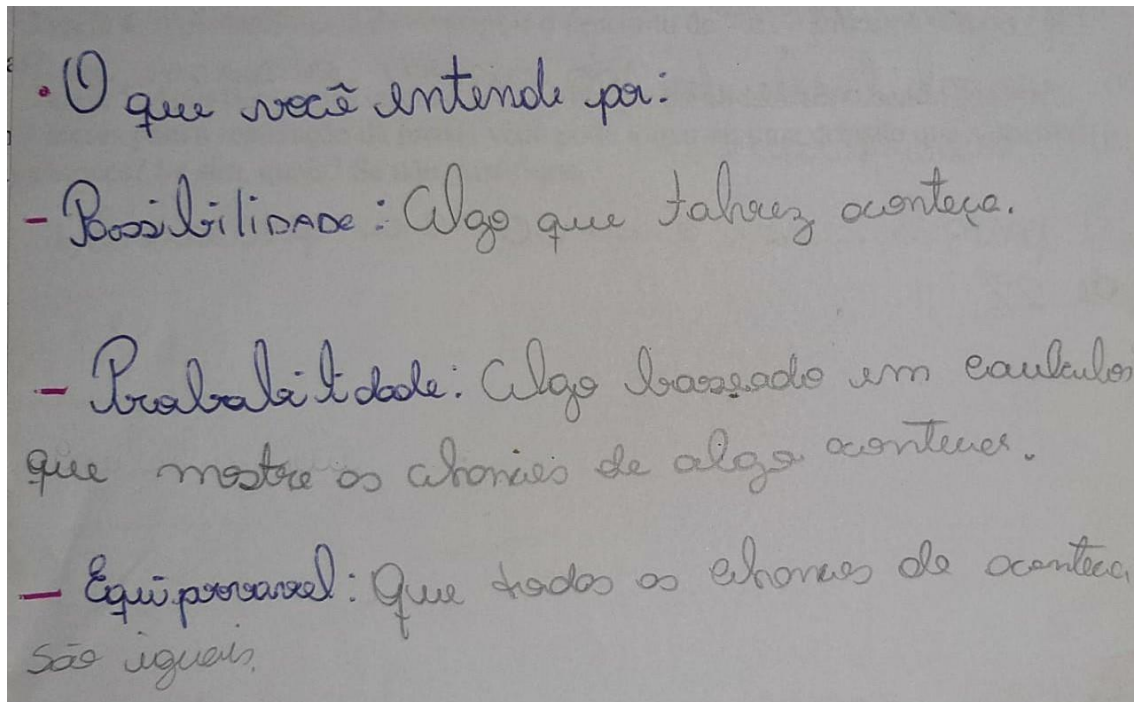 • O que você entende por:
- Possibilidade: Algo que talvez aconteça.
- Probabilidade: Algo basseado em caulculos
que mostre as chances de algo acontecer.
- Equiprovavel: Que todas as chances de acontecer
são iguais.